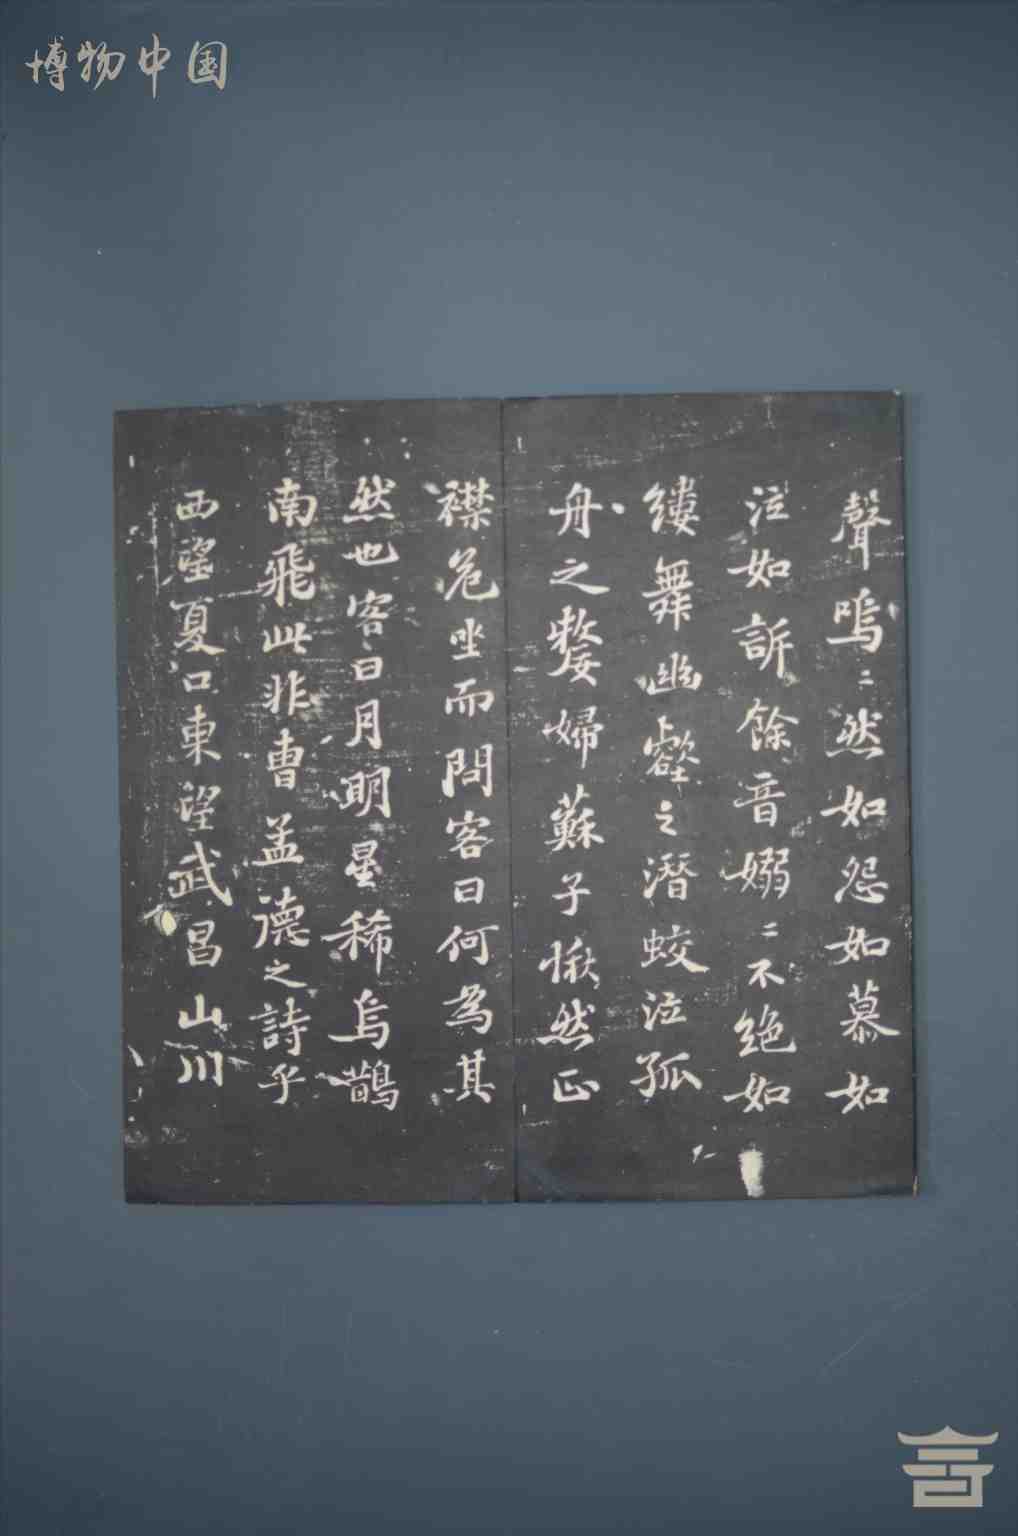 博物中国
聲嗚〻然如怨如慕如
泣如訴餘音嫋〻不絶如
縷舞幽壑之潛蛟泣孤
舟之嫠婦蘇子愀然正
襟危坐而問客曰何為其
然也客曰月明星稀烏鵲
南飛此非曹孟德之詩乎
西望夏口東望武昌山川